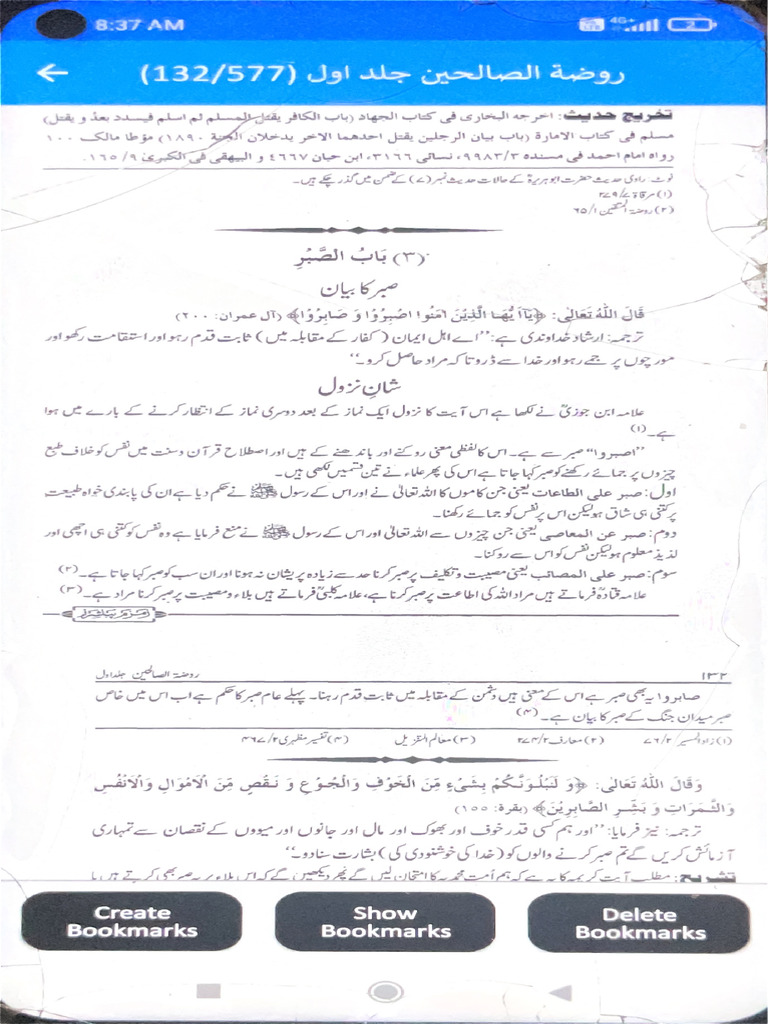 8:37 AM 4G+ 2
روضة الصالحين جلد اول (132/577)
تخریج حدیث: اخرجه البخاری فی کتاب الجهاد (باب الکافر یقتل المسلم ثم اسلم فیسدد بعد و یقتل)
مسلم فی کتاب الامارة (باب بیان الرجلین یقتل احدهما الاخر یدخلان الجنة ١٨٩٠) مؤطا مالک ١٠٠
رواه امام احمد فی مسنده ٩٩٨٣/٣، نسائی ٣١٦٦، ابن حبان ٤٦٦٧ و البیهقی فی الکبریٰ ١٦٥/٩.
نوٹ: راوی حدیث حضرت ابوہریرہؓ کے حالات حدیث نمبر (۷) کے ضمن میں گذر چکے ہیں۔
(۱) مرقاۃ ۲۷۹/۷
(۲) روضۃ المتقین ۶۵/۱
(۳) بَابُ الصَّبْرِ
صبر کا بیان
قَالَ اللّٰهُ تَعَالٰی: ﴿یٰۤاَیُّهَا الَّذِیْنَ اٰمَنُوا اصْبِرُوْا وَ صَابِرُوْا﴾ (آل عمران: ۲۰۰)
ترجمہ: ارشاد خداوندی ہے: ’’اے اہل ایمان (کفار کے مقابلہ میں) ثابت قدم رہو اور استقامت رکھو اور
مورچوں پر جمے رہو اور خدا سے ڈرو تاکہ مراد حاصل کرو۔‘‘
شانِ نزول
علامہ ابن جوزیؒ نے لکھا ہے اس آیت کا نزول ایک نماز کے بعد دوسری نماز کے انتظار کرنے کے بارے میں ہوا
ہے۔(۱)
’’اصبروا‘‘ صبر سے ہے۔ اس کا لفظی معنی روکنے اور باندھنے کے ہیں اور اصطلاح قرآن و سنت میں نفس کو خلاف طبع
چیزوں پر جمائے رکھنے کو صبر کہا جاتا ہے اس کی پھر علماء نے تین قسمیں لکھی ہیں۔
اول: صبر علی الطاعات یعنی جن کاموں کا اللہ تعالیٰ نے اور اس کے رسول ﷺ نے حکم دیا ہے ان کی پابندی خواہ طبیعت
پر کتنی ہی شاق ہو لیکن اس پر نفس کو جمائے رکھنا۔
دوم: صبر عن المعاصی یعنی جن چیزوں سے اللہ تعالیٰ اور اس کے رسول ﷺ نے منع فرمایا ہے وہ نفس کو کتنی ہی اچھی اور
لذیذ معلوم ہو لیکن نفس کو اس سے روکنا۔
سوم: صبر علی المصائب یعنی مصیبت و تکلیف پر صبر کرنا حد سے زیادہ پریشان نہ ہونا اور ان سب کو صبر کہا جاتا ہے۔(۲)
علامہ قتادہؒ فرماتے ہیں مراد اللہ کی اطاعت پر صبر کرنا ہے، علامہ کلبیؒ فرماتے ہیں بلاء و مصیبت پر صبر کرنا مراد ہے۔(۳)
زمزم پبلشرز
۱۳۲ روضۃ الصالحین جلد اول
صابروا یہ بھی صبر ہے اس کے معنی ہیں دشمن کے مقابلہ میں ثابت قدم رہنا۔ پہلے عام صبر کا حکم ہے اب اس میں خاص
صبر میدان جنگ کے صبر کا بیان ہے۔(۴)
(۱) زاد المسیر ۷۶/۲ (۲) معارف ۲۷۴/۲ (۳) معالم التنزیل (۴) تفسیر مظہری ۴۶۷/۲
وَقَالَ اللّٰهُ تَعَالٰی: ﴿وَ لَنَبْلُوَنَّكُمْ بِشَیْءٍ مِّنَ الْخَوْفِ وَالْجُوْعِ وَ نَقْصٍ مِّنَ الْاَمْوَالِ وَالْاَنْفُسِ
وَالثَّمَرَاتِ وَ بَشِّرِ الصَّابِرِیْنَ﴾ (بقرة: ۱۵۵)
ترجمہ: نیز فرمایا: ’’اور ہم کسی قدر خوف اور بھوک اور مال اور جانوں اور میووں کے نقصان سے تمہاری
آزمائش کریں گے تم صبر کرنے والوں کو (خدا کی خوشنودی کی) بشارت سنا دو۔‘‘
تشریح: مطلب آیت کریمہ کا یہ ہے کہ ہم اُمت محمدیہ کا امتحان لیں گے پھر دیکھیں گے کہ اس بلاء پر یہ صبر بھی کرتے ہیں یا
Create Bookmarks
Show Bookmarks
Delete Bookmarks